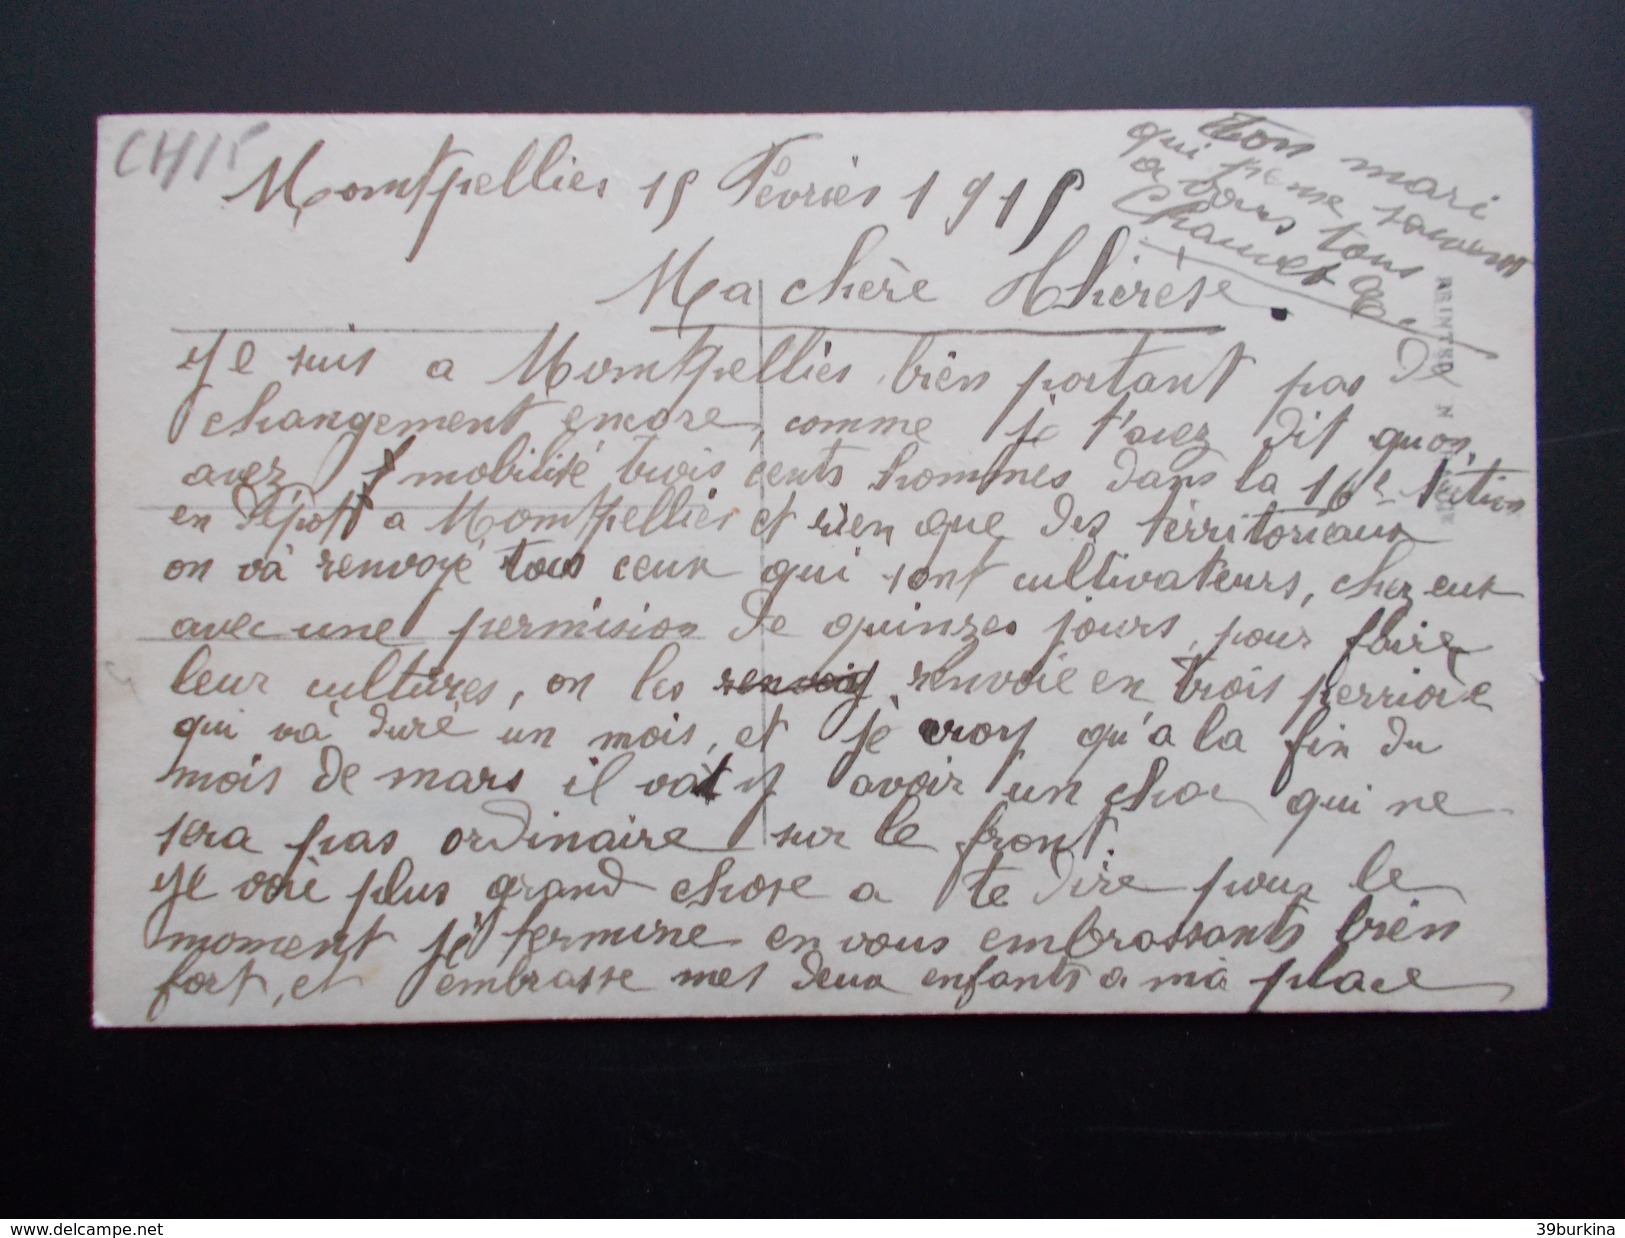 CH15
Montpellier 15 Février 1915
Ma chère Thérèse.
Je suis a Montpellier, bien portant pas de
changement encore, comme je t'avez dit quon
avez mobilisé trois cents hommes dans la 16e section
en dépôt a Montpellier et rien que des térritoriaux
on và renvoyé tous ceux qui sont cultivateurs, chez eux
avec une permision de quinzes jours, pour faire
leur cultures, on les renvoie en trois perriode
qui và duré un mois, et je croy qu'a la fin du
mois de mars il và y avoir un choc qui ne
sera pas ordinaire sur le front.
Je voie plus grand chose a te dire pour le
moment je termine en vous embrassants bien
fort, et embrasse mes deux enfants a mà place
Ton mari
qui pense souvent
a vous tous
PRINTED IN
www.delcampe.net
39burkina